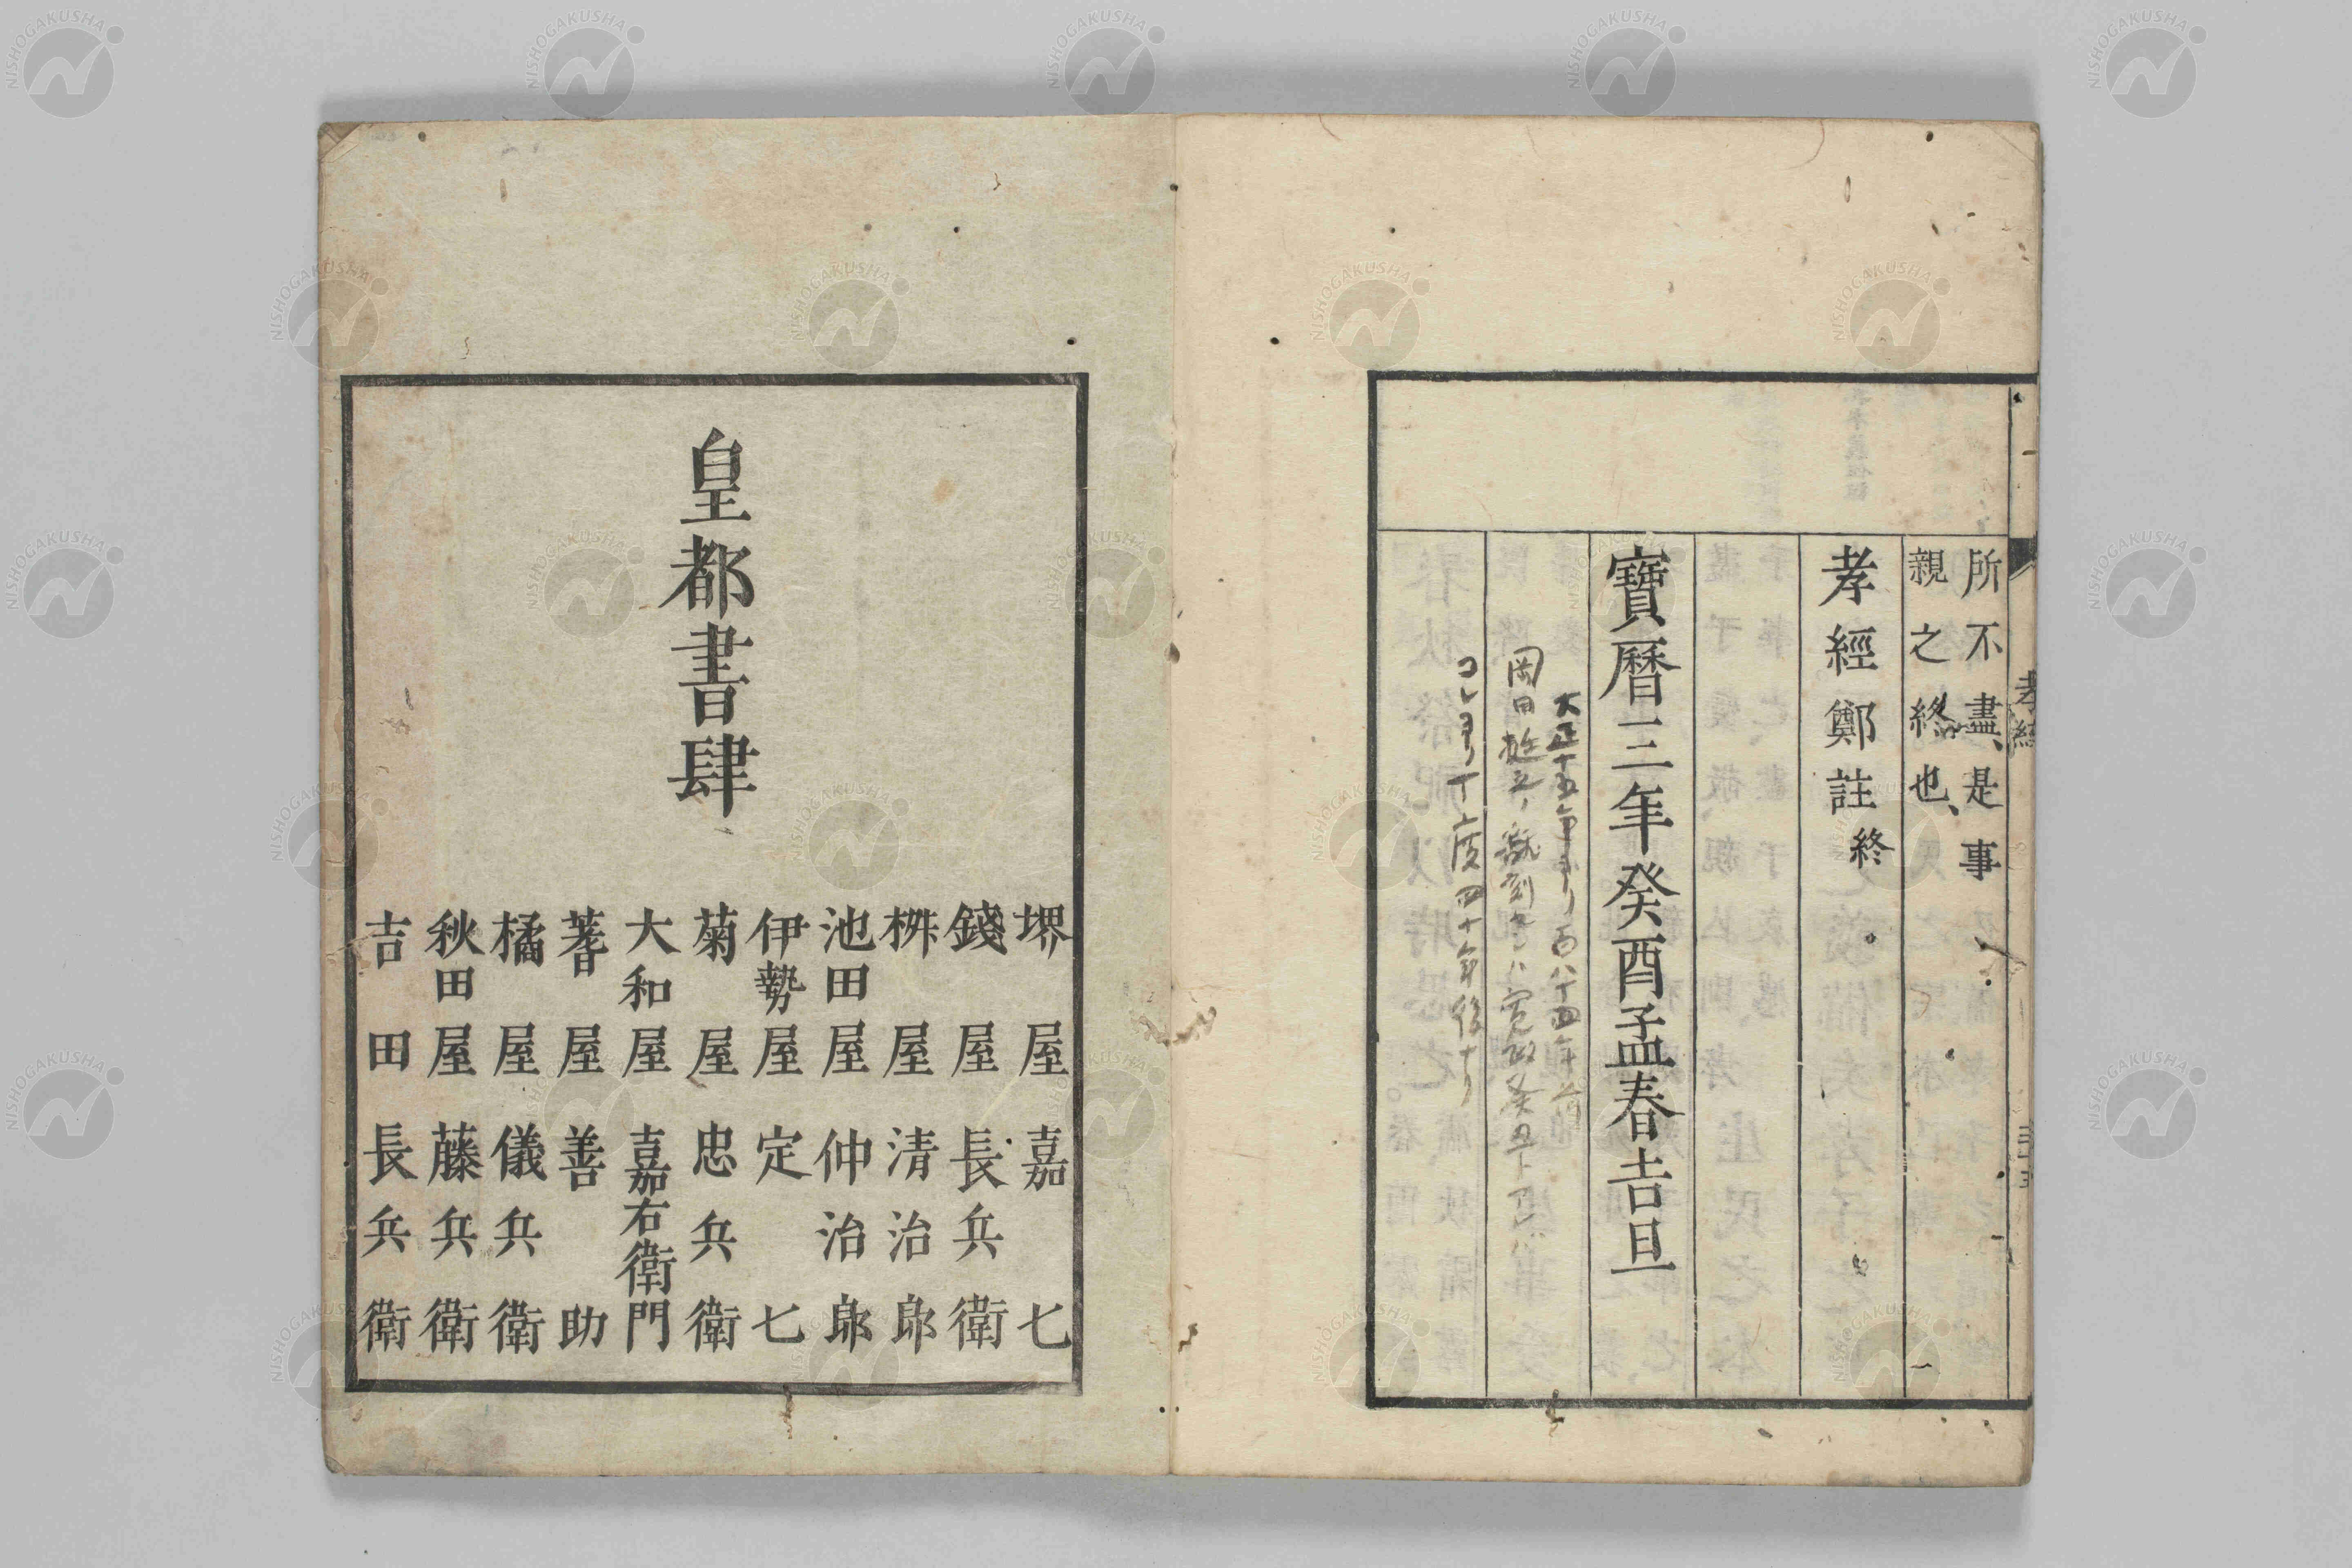 所不盡、是事
親之終也、
孝經鄭註終
寶曆三年癸酉孟春吉旦
大正十五年ヨリ百八十四年前
岡田挺之ノ翻刻本ハ寛政癸丑
コレヨリ丁度四十年後ナリ
孝經
皇都書肆
堺屋嘉七
錢屋長兵衛
桝屋清治郎
池田屋仲治郎
伊勢屋定七
菊屋忠兵衛
大和屋嘉右衛門
蓍屋善助
橘屋儀兵衛
秋田屋藤兵衛
吉田長兵衛
NISHOGAKUSHA